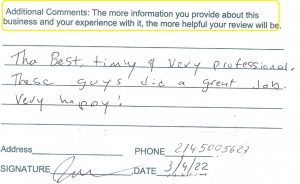 Additional Comments: The more information you provide about this
business and your experience with it, the more helpful your review will be.
The Best, timly & Very professional.
These guys did a great Job.
Very happy!
Address PHONE 2145005627
SIGNATURE DATE 3/4/22